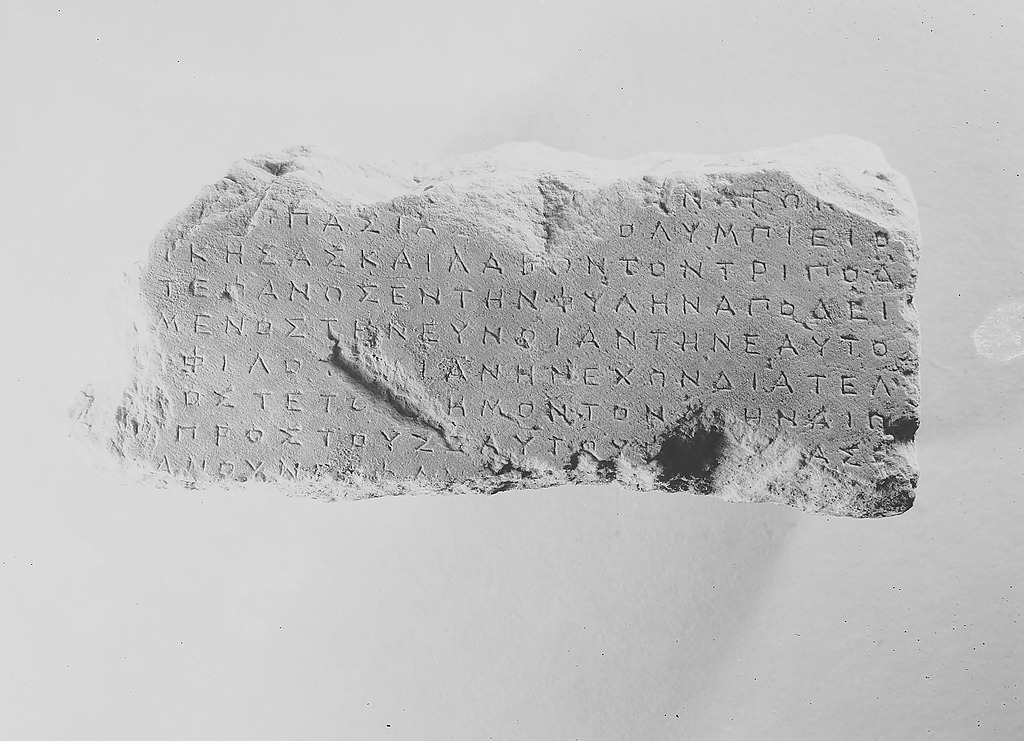 ΝΑΓΩΝ
ΠΑΣΙΑ ΟΛΥΜΠΙΕΙΟ
ΙΚΗΣΑΣΚΑΙΛΑΒΩΝΤΟΝΤΡΙΠΟΔ
ΤΕΦΑΝΩΣΕΝΤΗΝΦΥΛΗΝΑΠΟΔΕΙ
ΜΕΝΟΣΤΗΝΕΥΝΟΙΑΝΤΗΝΕΑΥΤΟ
ΦΙΛΟ ΙΑΝΗΝΕΧΩΝΔΙΑΤΕΛ
ΟΣΤΕΤΟ ΗΜΟΝΤΟΝ ΗΝΑΙΩ
ΠΡΟΣΤΟΥΣ ΑΥΤΟΥ ΑΣ
ΑΜΟΥΝ